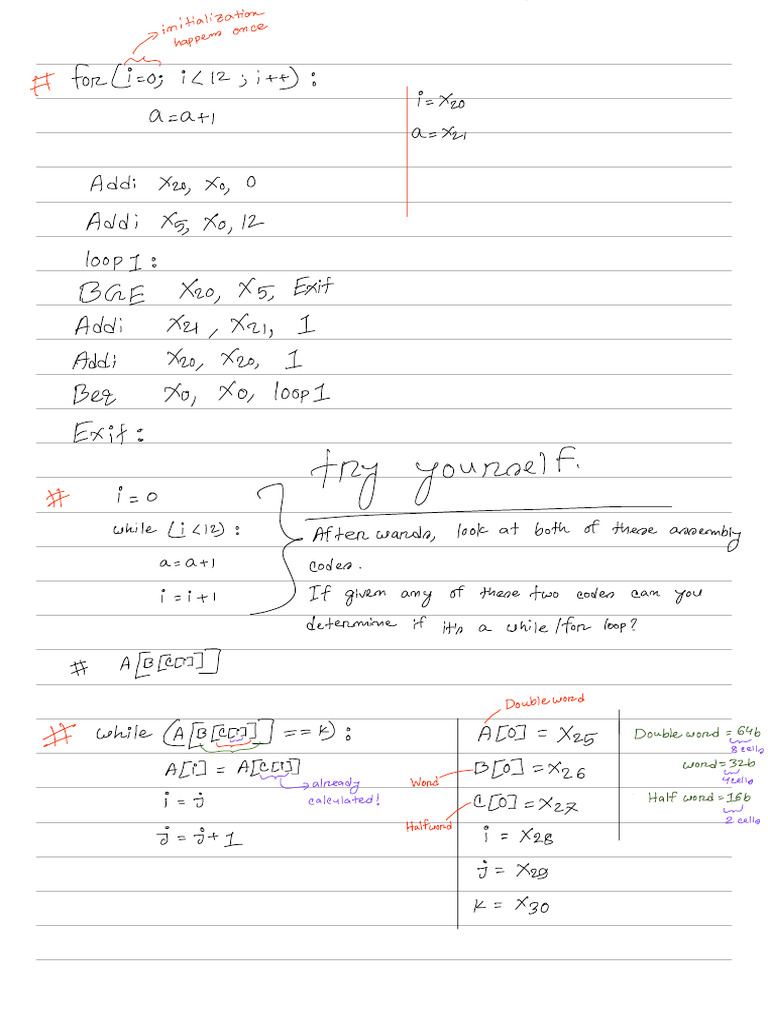 initialization
happens once
# for(i=0; i<12; i++):
a=a+1
i=X20
a=X21
Addi X20, X0, 0
Addi X5, X0, 12
loop1:
BGE X20, X5, Exit
Addi X21, X21, 1
Addi X20, X20, 1
Beq X0, X0, loop1
Exit:
try yourself.
# i=0
while (i<12):
a=a+1
i=i+1
After wards, look at both of these assembly
codes.
If given any of these two codes can you
determine if it's a while/for loop?
# A[B[C[i]]]
# while (A[B[C[i]]] == k):
A[i] = A[C[i]]
already
calculated!
i = j
j = j+1
Double word
A[0] = X25
Word
B[0] = X26
Halfword
C[0] = X27
i = X28
j = X29
k = X30
Double word = 64b
8 cells
word = 32b
4 cells
Half word = 16b
2 cells